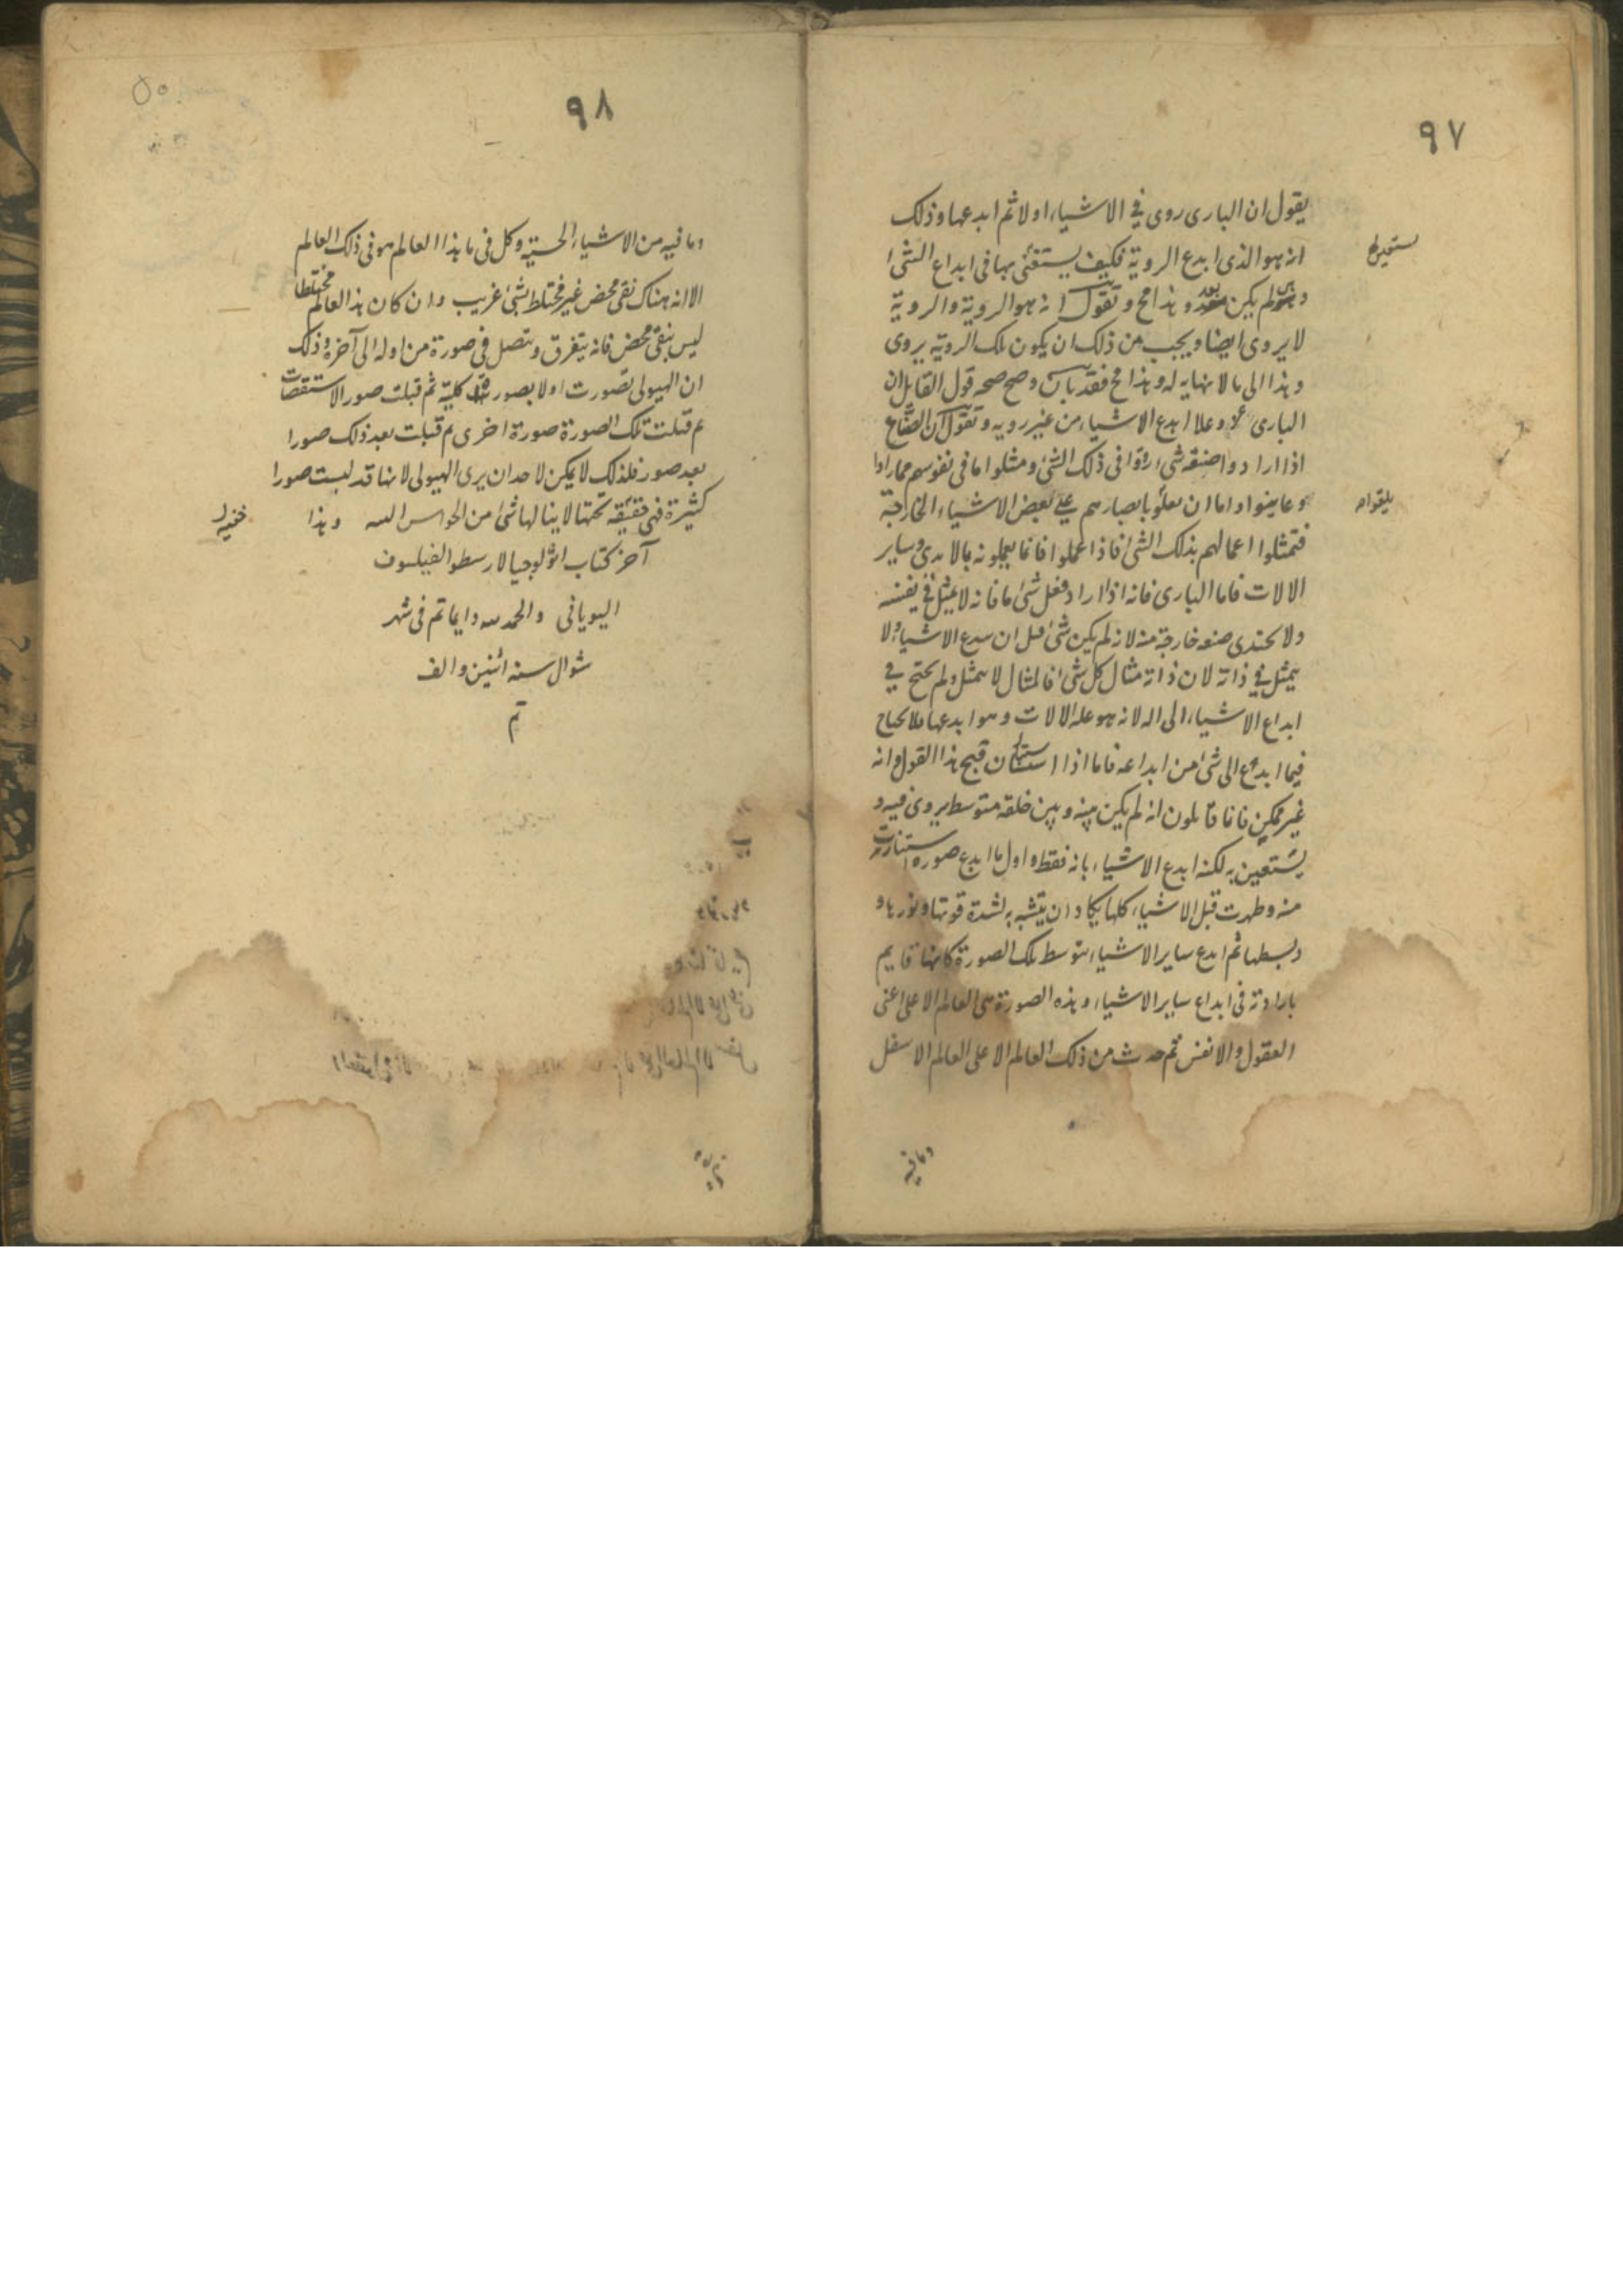 ٩٧
يقول ان البارى روى في الاشياء اولا ثم ابدعها وذلك
انه هو الذى ابدع الروية فكيف يستغنى بها فى ابداع الشئ
ستعين ط
لم يكن بعد وهذا مح ونقول انه هو الروية والروية
لا يروى ايضا ويجب من ذلك ان يكون تلك الروية يروى
وهذا الى ما لا نهاية له وهذا مح فقد بان وصح صحه قول القايل ان
البارى عز وعلا ابدع الاشياء من غير رويه ونقول ان الصناع
اذا ارادوا صنعه شئ روّوا فى ذلك الشئ ومثلوا ما فى نفوسهم مما راوا
وعاينوا واما ان يلقوا بابصارهم على بعض الاشياء الخارجة
يلقوا ط
فتمثلوا اعمالهم بذلك الشئ فاذا عملوا فانما يعملونه بالايدى وساير
الالات فاما البارى فانه اذا اراد فعل شئ ما فانه لا يمثل فى نفسه
ولا يحتدى صنعه خارجة منه لانه لم يكن شئ قبل ان يبدع الاشياء ولا
يتمثل فى ذاته لان ذاته مثال كل شئ فالمثال لا يتمثل ولم يحتج في
ابداع الاشياء الى اله لانه هو علة الالات وهو ابدعها فلا يحتاج
فيما ابدع الى شئ من ابداعه فاما اذا استبان قبح هذا القول وانه
غير ممكن فانا قايلون انه لم يكن بينه وبين خلقه متوسط يروى فيه و
يستعين به لكنه ابدع الاشياء بانه فقط واول ما ابدع صورة استنارت
منه وظهرت قبل الاشياء كلها يكاد ان يتشبه به لشدة قوتها ونورها و
وبسطها ثم ابدع ساير الاشياء بتوسط تلك الصورة كانها قايم
بارادته فى ابداع ساير الاشياء وهذه الصورة هى العالم الاعلى اعنى
العقول والانفس ثم حدث من ذلك العالم الاعلى العالم الاسفل
وما فيه
٩٨
وما فيه من الاشياء الحسية وكل فى ما هذا العالم هو فى ذلك العالم
الا انه هناك نقى محض غير مختلط بشئ غريب وان كان هذا العالم مختلطا
ليس بنقى محض فانه يتفرق ويتصل فى صورة من اوله الى آخره وذلك
ان الهيولى تصورت اولا بصورة كلية ثم قبلت صور الاستقصات
ثم قبلت تلك الصورة صورة اخرى ثم قبلت بعد ذلك صورا
بعد صور فلذلك لا يمكن لاحد ان يرى الهيولى لانها قد لبست صورا
كثيرة فهى تحتها لا ينالها شئ من الحواس البته وهذا
خفية
آخر كتاب اثولوجيا لارسطو الفيلسوف
اليونانى والحمد لله دايما تم فى شهر
شوال سنه اثنين والف
تم